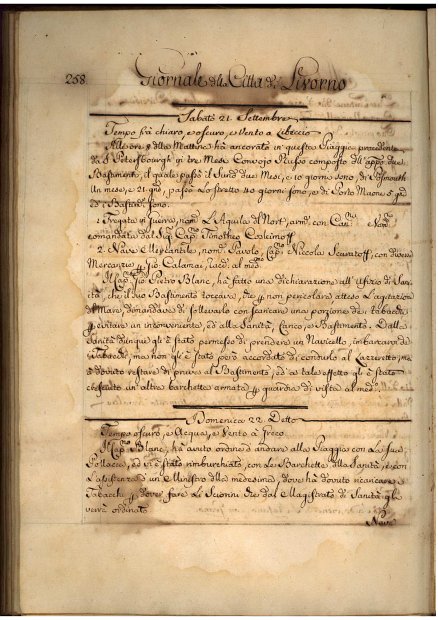 258. Giornale della Città di Livorno
Sabato 21. Settembre
Tempo frà chiaro, e oscuro, e Vento a Libeccio
Alle ore 8 della Mattina hà ancorato in questa Piaggia procedente
da S. Petersbourgh in tre Mesi Convojo Russo composto dell'app. due
Bastimenti, il quale passò il Sund due Mesi, e 10 giorni sono, di
Un mese, e 21 gni, passò Lo stretto 40 giorni sono, e di Porto Maone 5. gni
e i Bastim. sono.
1. Fregata in guerra, nom. L'Aquila del Nort, arm. con Can.
comandata dal Sig. Cap. Timofteo Cosleinoff
2. Nave Mercantile, nom. Pavolo, Cap. Niccola Scuratoff, con diverse
Mercanzie Gio Calamai, racc. al med.
Il Cap. Gio Pietro Blanc, hà fatto una dichiarazione all'Ufizio di Sani
tà, che il suo Bastimento toccava, che non pericolare atteso L'agitazione
di Mare, domandava di sollevarlo con scaricare una porzione di tabacchi
evitare un inconveniente, ed alla Sanità, Carico, e Bastimento. Dalla
Sanità dunque gli è stato permesso di prendere un Navicello, imbarcarvi de
Tabacchi, ma non gli è stato però accordato di condurlo al Lazzeretto, ma
è dovuto restare di prua al Bastimento, ed a tale effetto gli è stata
un altra barchetta armata guardia di vista al med.
Domenica 22. Detto
Tempo oscuro, e Acqua, e Vento a Greco
Il Cap. Blanc, hà avuto ordine d'andare alla Piaggia con La sua
Pollacca, ed vi è stato rimburchiato, con Le Barchette della Sanità, e con
L'assistenza d'un Ministro della medesima, dove hà dovuto ricaricare i
Tabacchi dover fare Li Sciorini che dal Magistrato di Sanità gli
verrà ordinato
Nave